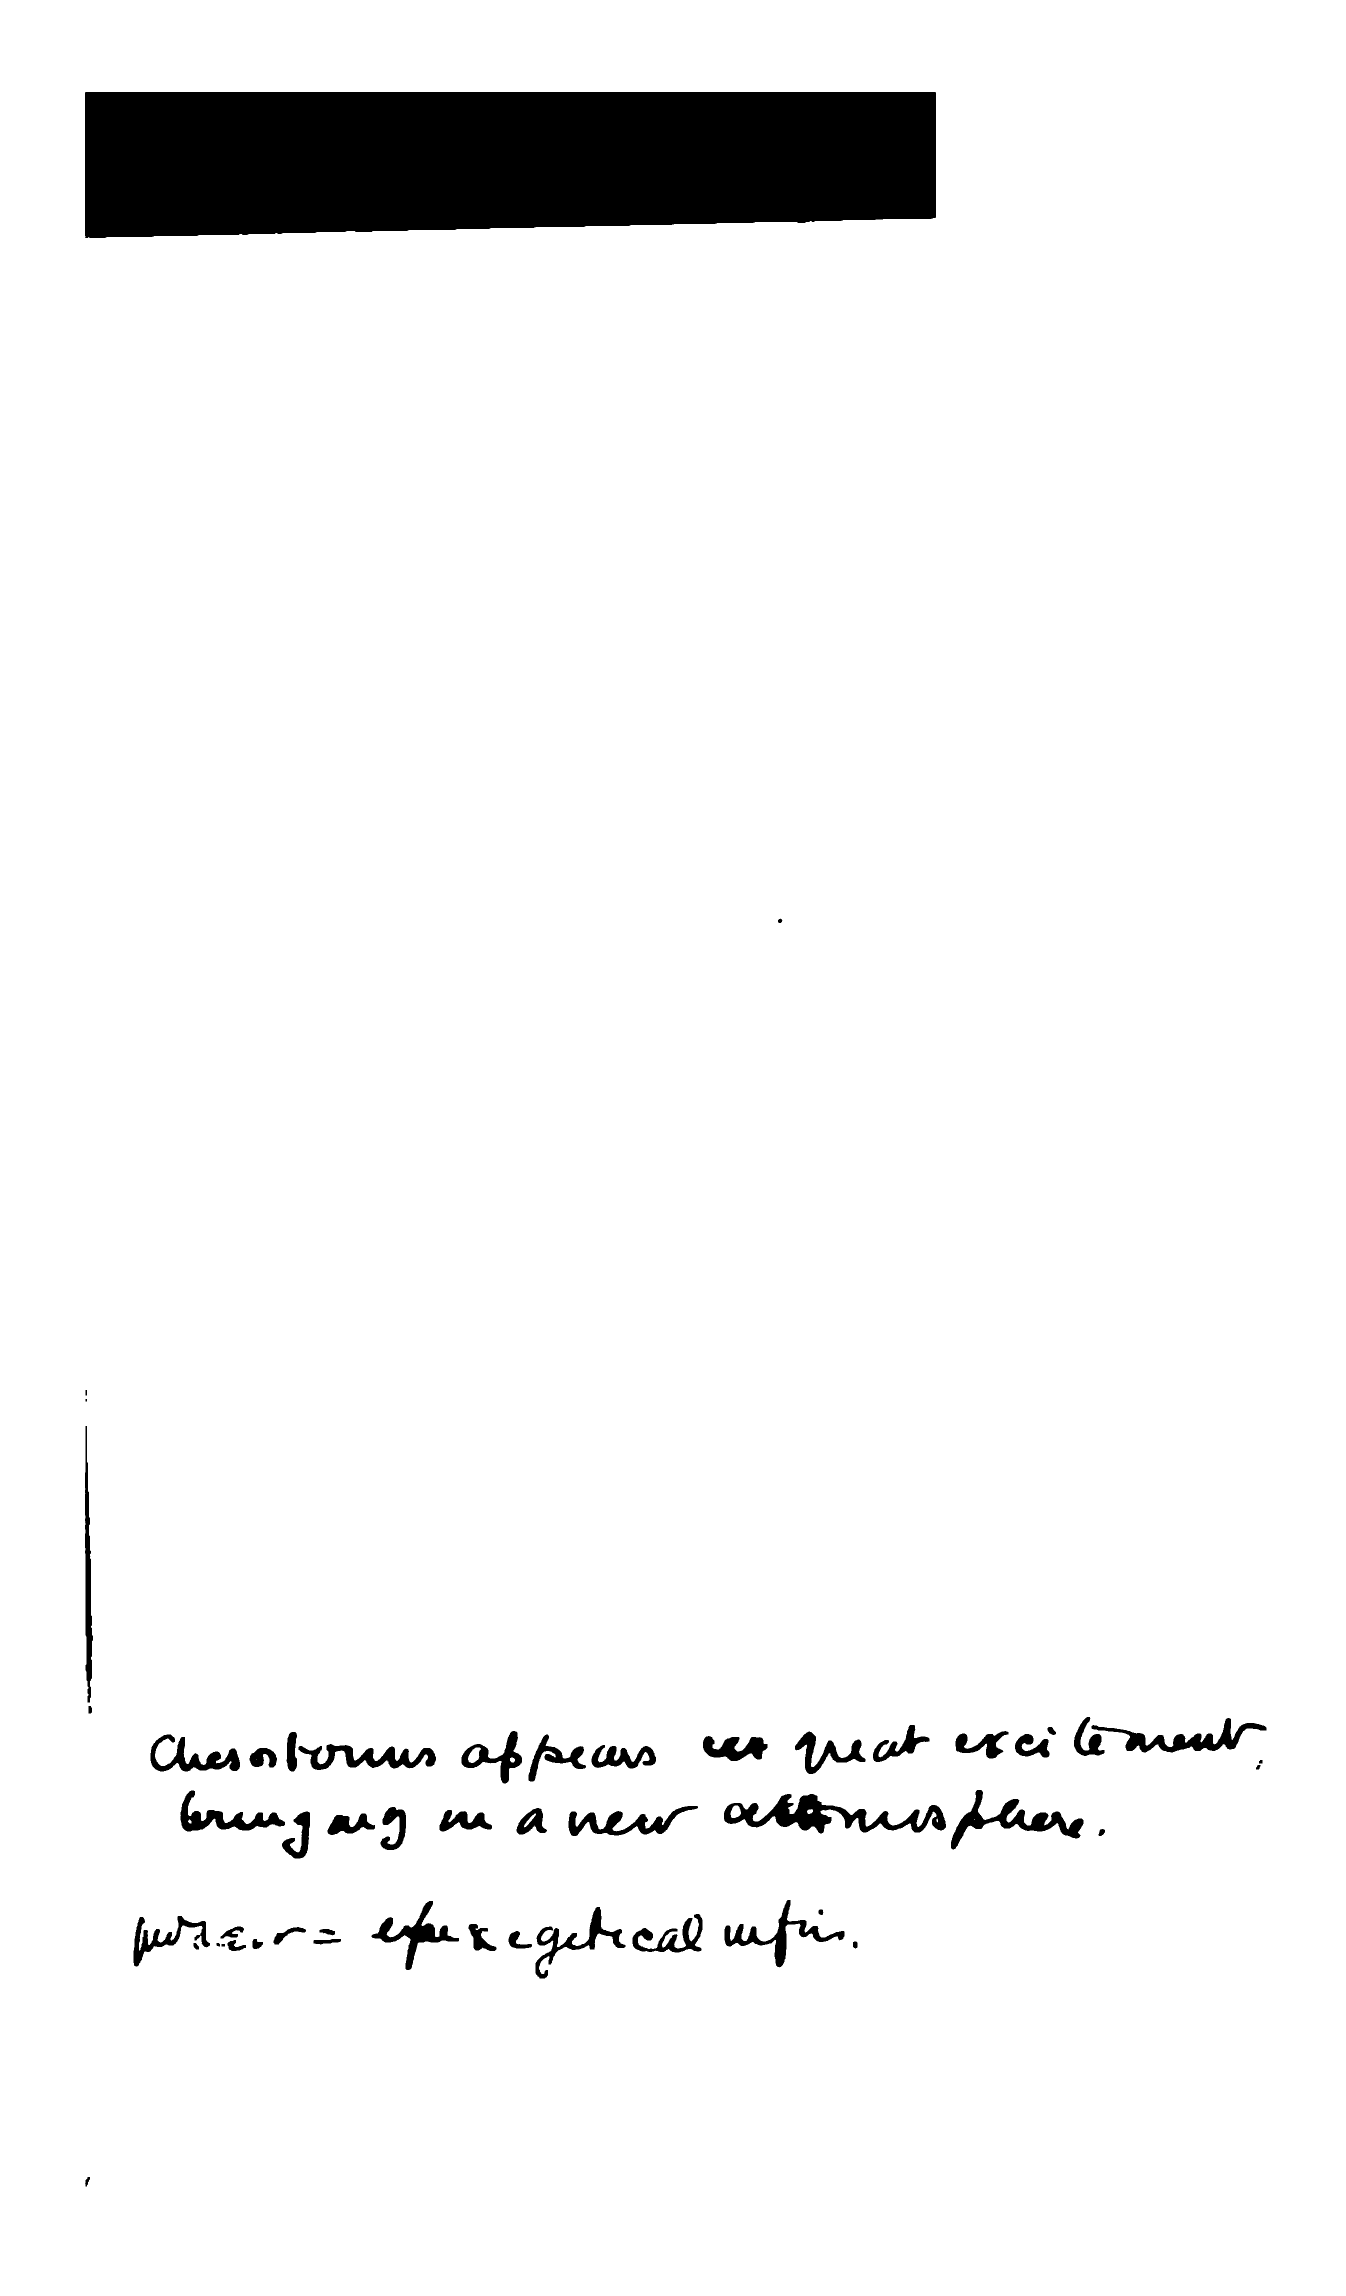 Chrysostomus appears in great excitement,
bringing in a new atmosphere.
= epexegetical infin.